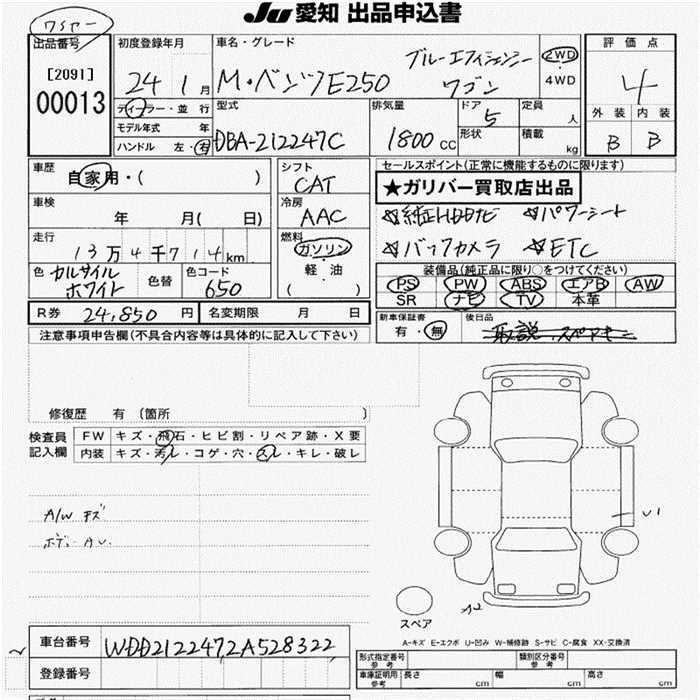 Ju 愛知 出品申込書
ワシヤー
出品番号
[2091]
00013
初度登録年月
24 1月
ディーラー・並 行
モデル年式 年
ハンドル 左・右
車名・グレード
M・ベンツE250
ブルーエフィシェンシー
ワゴン
2WD
4WD
評価点
4
外装 内装
B B
型式
DBA-212247C
排気量
1800CC
ドア
5
形状
定員
人
積載
kg
車歴
自家用・( )
車検
年 月( 日)
走行
13万4千714km
色 カルサイル
ホワイト
色替
色コード
650
シフト
CAT
冷房
AAC
燃料
ガソリン
・
軽・油
( )
セールスポイント(正常に機能するものに限ります)
★ガリバー買取店出品
☆純正HDDナビ ☆パワーシート
☆バックカメラ ☆ETC
装備品(純正品に限り○をつけてください)
PS PW ABS エアB AW
SR ナビ TV 本革
R券 24,850 円
名変期限 月 日
新車保証書
有・無
後日品
取説、スペアキー
注意事項申告欄(不具合内容等は具体的に記入して下さい)
修復歴 有〔箇所 〕
検査員
記入欄
FW キズ・飛石・ヒビ割・リペア跡・X要
内装 キズ・汚レ・コゲ・穴・スレ・キレ・破レ
A/W キズ
ボディー AU.
U1
A2
スペア
A-キズ E-エクボ U-凹み W-補修跡 S-サビ C-腐食 XX-交換済
車台番号 WDD2122472A528322
登録番号
形式指定番号
参考
類別区分番号
参考
車庫証明用
参考
長さ cm
幅 cm
高さ cm